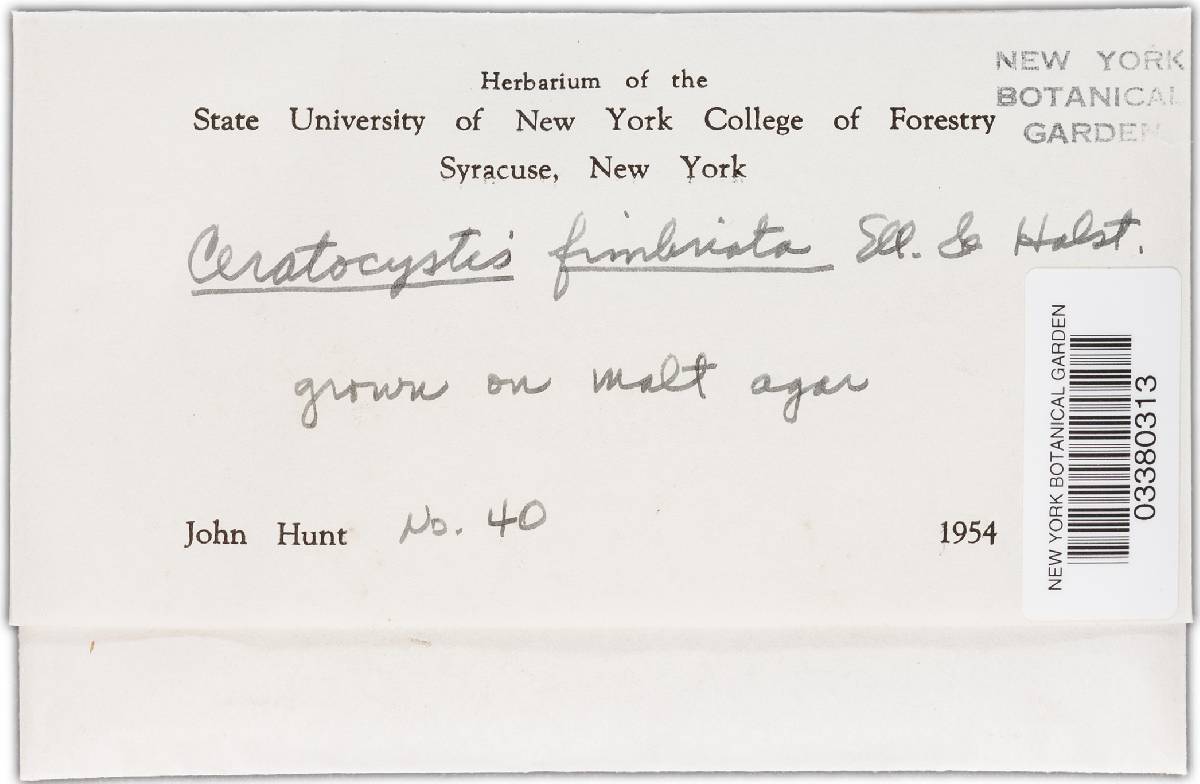 NEW YORK
BOTANICAL
GARDEN
Herbarium of the
State University of New York College of Forestry
Syracuse, New York
Ceratocystis fimbriata Ell. & Halst.
grown on malt agar
John Hunt No. 40 1954
NEW YORK BOTANICAL GARDEN
03380313